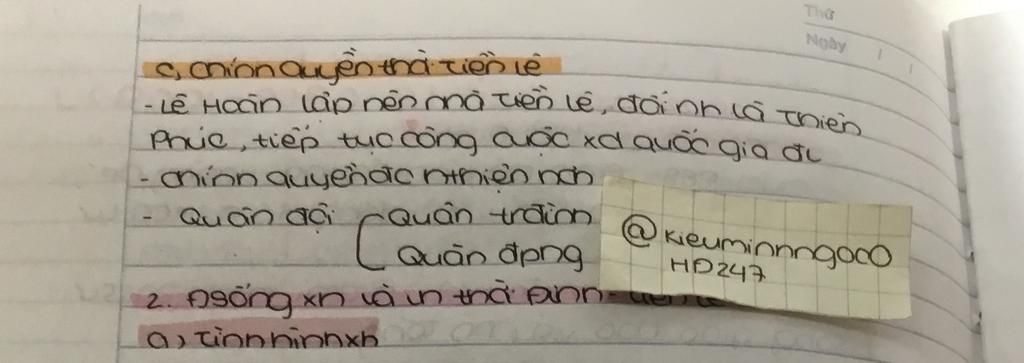 Thứ
Ngày
c, chính quyền thời tiền lê
- Lê Hoàn lập nên nhà tiền lê, đổi nh là Thiên
Phúc, tiếp tục công cuộc xd quốc gia đl
- chính quyền đc h+hiện hch
- Quân đội { Quân trđình
Quân đpng
@kieuminhngoc0
HD247
2. Đsống xh và vh thời Đinh-
a) Tình hình xh